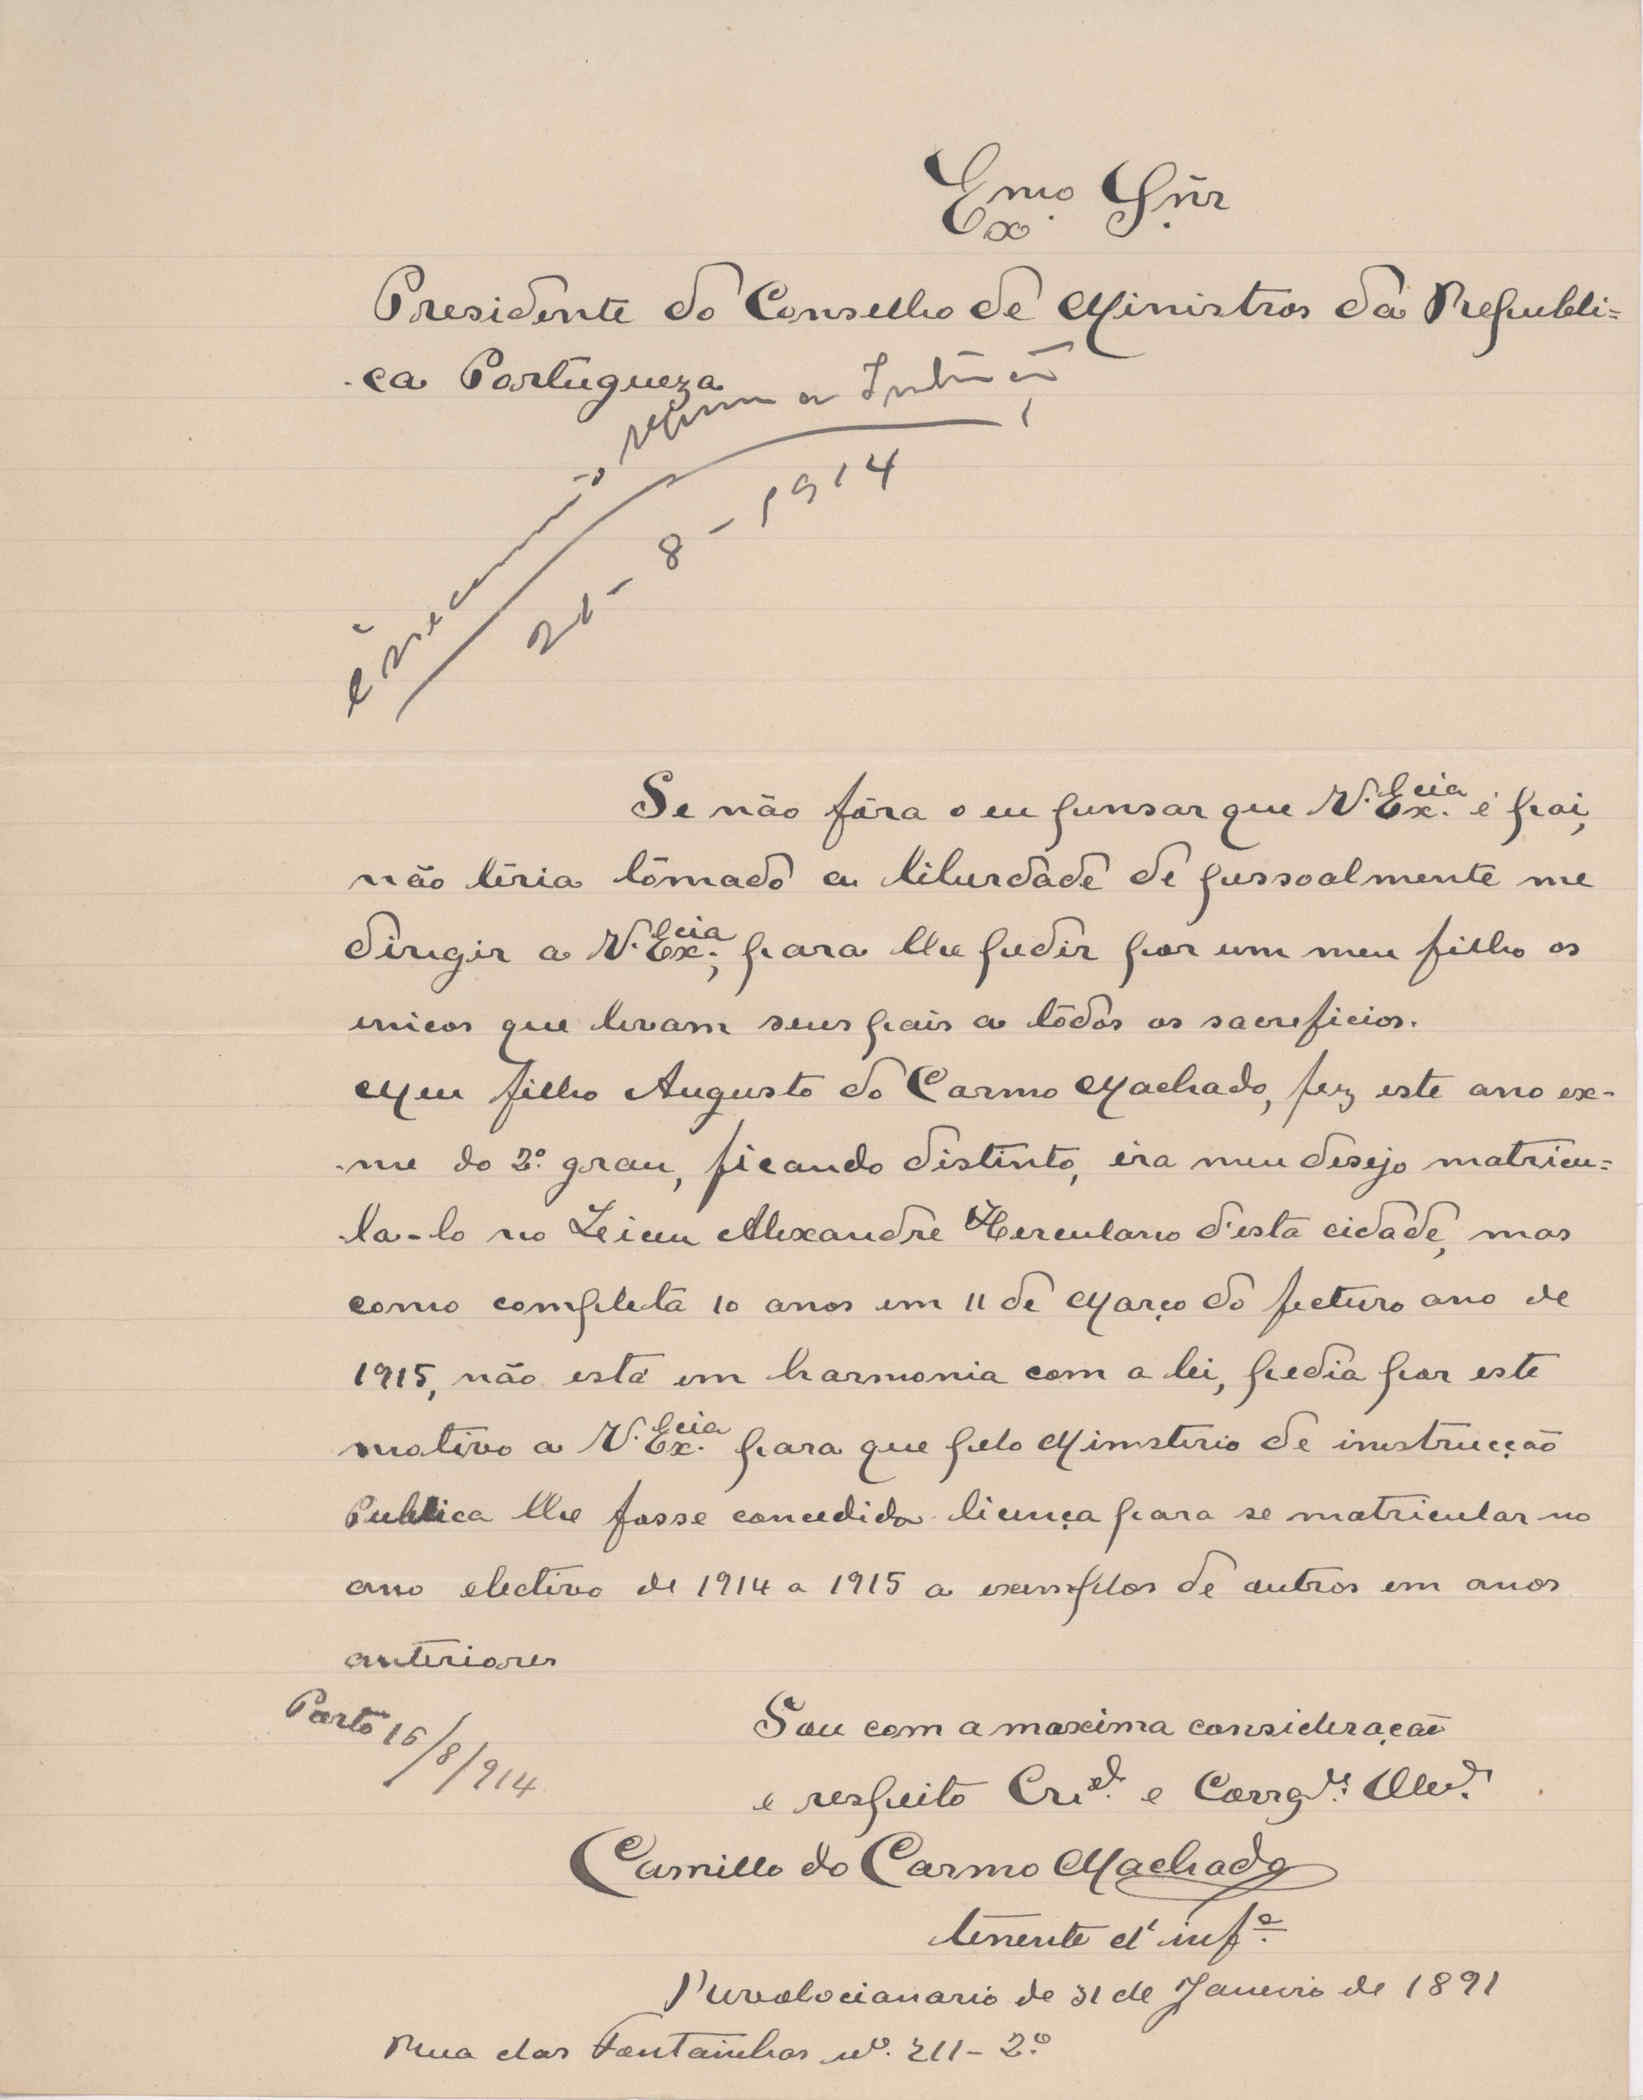 Exmo. Snr
Presidente do Conselho de Ministros da Republi=
-ca Portugueza
21-8-1914
Se não fôra o eu pensar que V. Excia. é pai,
não teria tomado a liberdade de pessoalmente me
dirigir a V. Excia.; para lhe pedir por um meu filho os
unicos que levam seus pais a todos os sacreficios.
Meu filho Augusto do Carmo Machado, fez este ano ex-
-me do 2º. grau, ficando distinto, era meu desejo matricu=
-la-lo no Leicu Alexandre Herculano d'esta cidade, mas
como completa 10 anos em 11 de Março do fucturo ano de
1915, não está em harmonia com a lei, pedia por este
motivo a V. Excia. para que pelo Ministerio de instrucção
Publica lhe fosse concedida licença para se matricular no
ano electivo de 1914 a 1915 a exemplos de outros em anos
anteriores
Porto 16/8/914
Sou com a maxima consideração
e respeito
Camillo do Carmo Machado
tenente d'infª.
Revolocianario de 31 de Janeiro de 1891
Rua das Fontainhas nº. 211-2º.